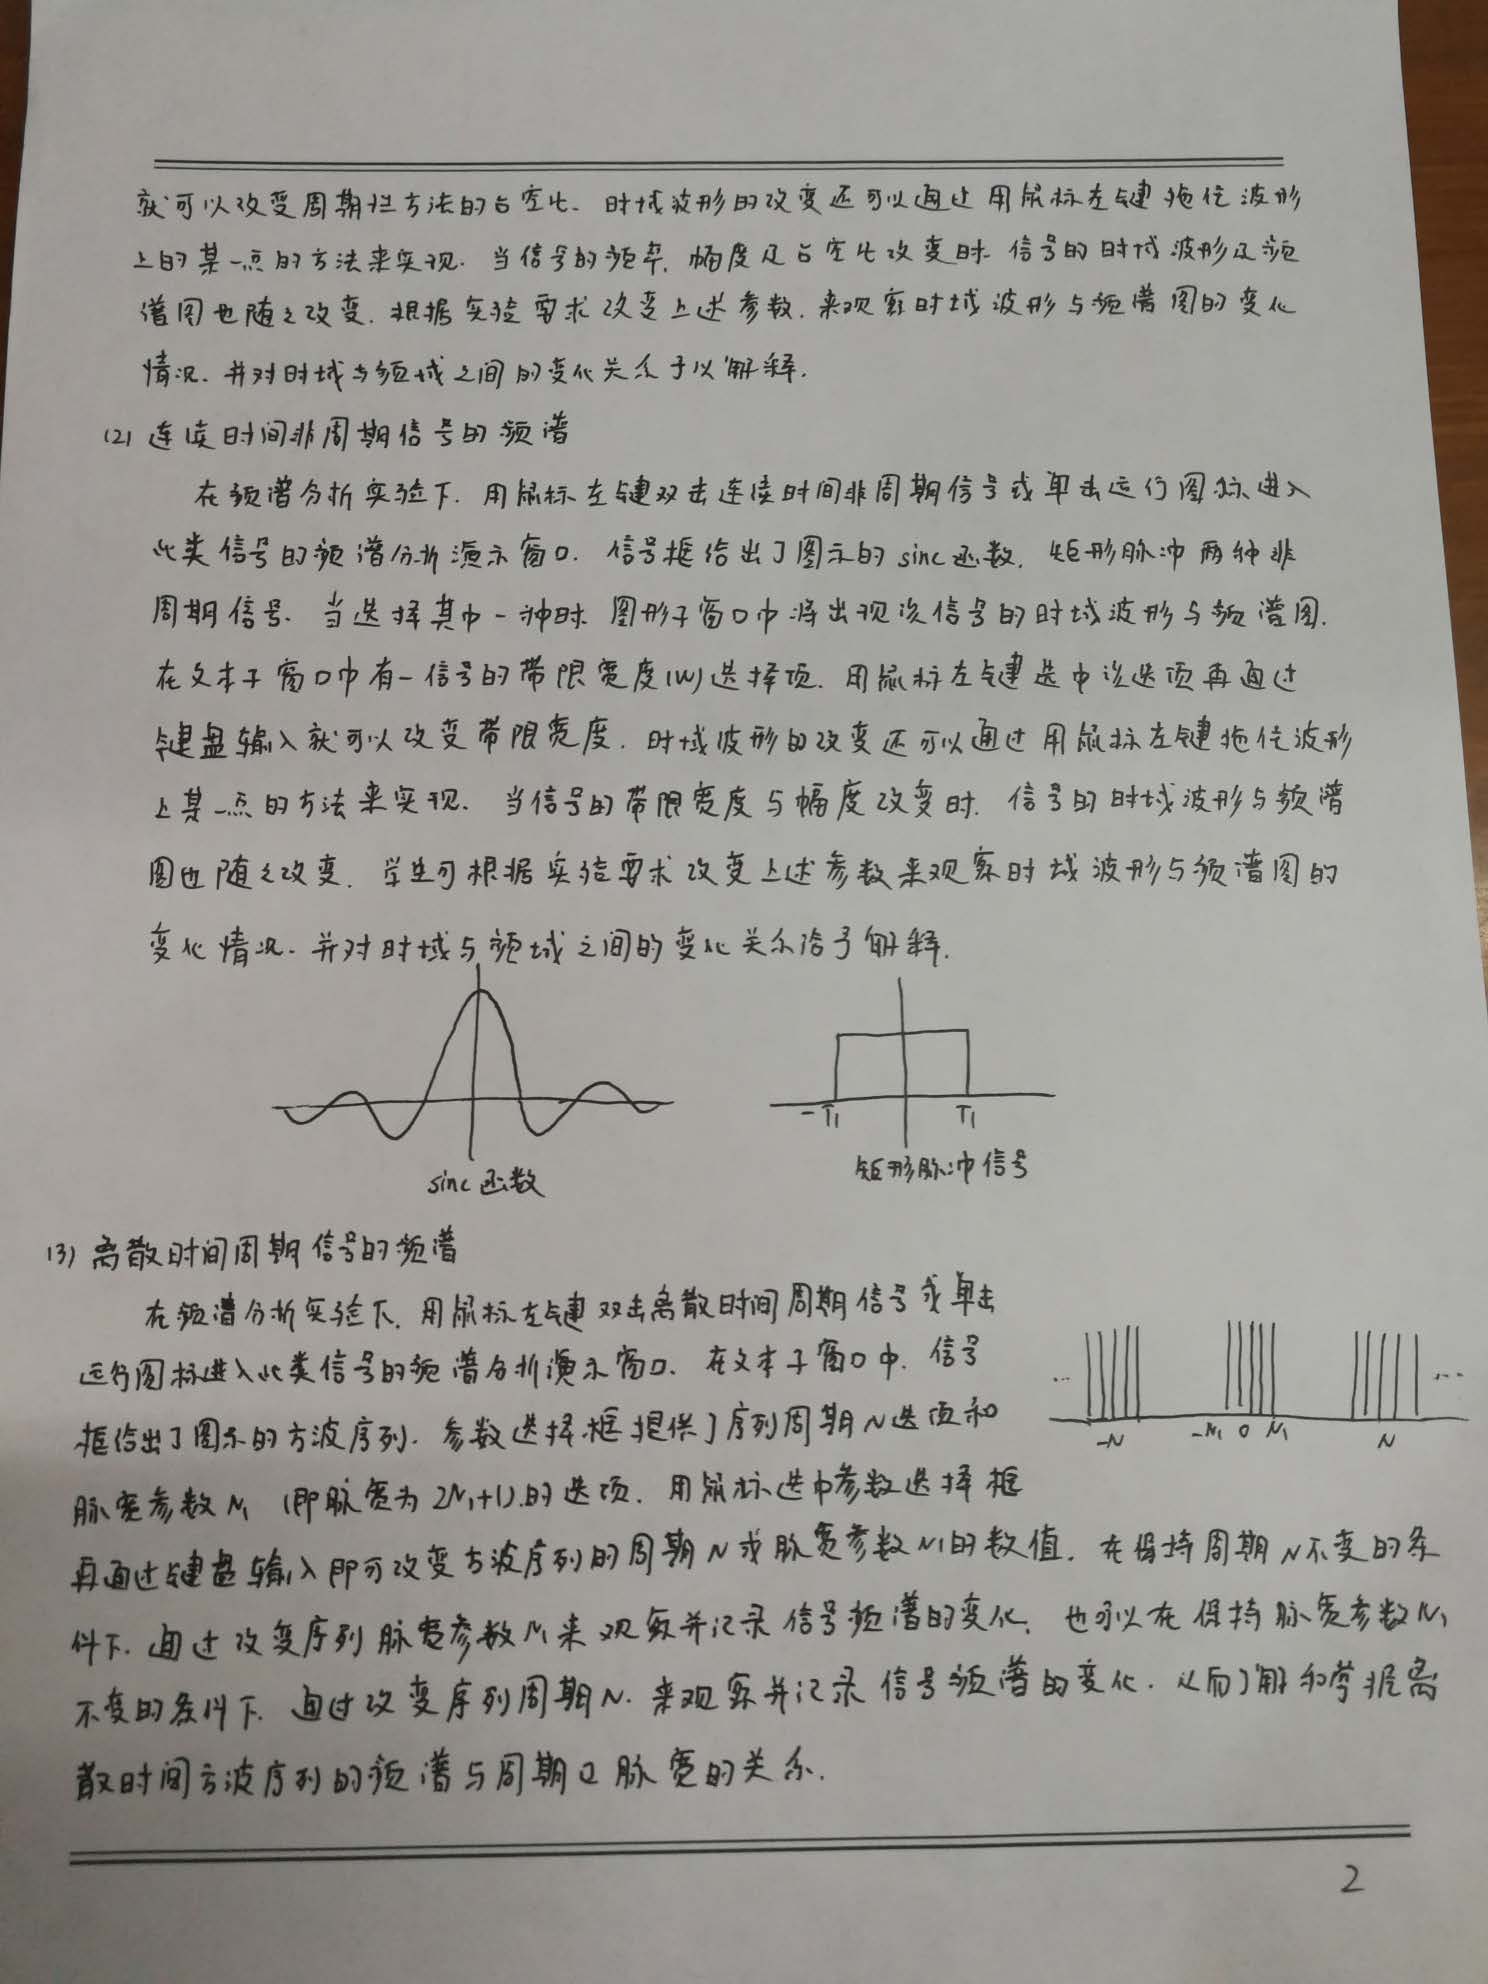 就可以改变周期性方法的占空比. 时域波形的改变还可以通过用鼠标左键拖住波形
上的某一点的方法来实现. 当信号的频率, 幅度及占空比改变时. 信号的时域波形及频
谱图也随之改变. 根据实验要求改变上述参数. 来观察时域波形与频谱图的变化
情况. 并对时域与频域之间的变化关系予以解释.
(2) 连续时间非周期信号的频谱
在频谱分析实验下. 用鼠标左键双击连续时间非周期信号或单击运行图标进入
此类信号的频谱分析演示窗口. 信号框给出了图示的sinc函数, 矩形脉冲两种非
周期信号. 当选择其中一种时. 图形子窗口中将出现该信号的时域波形与频谱图.
在文本子窗口中有一信号的带限宽度(W)选择项. 用鼠标左键选中该选项再通过
键盘输入就可以改变带限宽度. 时域波形的改变还可以通过用鼠标左键拖住波形
上某一点的方法来实现. 当信号的带限宽度与幅度改变时. 信号的时域波形与频谱
图也随之改变. 学生可根据实验要求改变上述参数来观察时域波形与频谱图的
变化情况. 并对时域与频域之间的变化关系给予解释.
-T₁ T₁
sinc函数 矩形脉冲信号
(3) 离散时间周期信号的频谱
在频谱分析实验下. 用鼠标左键双击离散时间周期信号或单击
运行图标进入此类信号的频谱分析演示窗口. 在文本子窗口中. 信号
框给出了图示的方波序列. 参数选择框提供了序列周期N选项和
... -N -N₁ 0 N₁ N ...
脉宽参数N₁ (即脉宽为2N₁+1).的选项. 用鼠标选中参数选择框
再通过键盘输入即可改变方波序列的周期N或脉宽参数N₁的数值. 在保持周期N不变的条
件下. 通过改变序列脉宽参数N₁来观察并记录信号频谱的变化. 也可以在保持脉宽参数N₁
不变的条件下. 通过改变序列周期N. 来观察并记录信号频谱的变化. 从而了解和掌握离
散时间方波序列的频谱与周期及脉宽的关系.
2